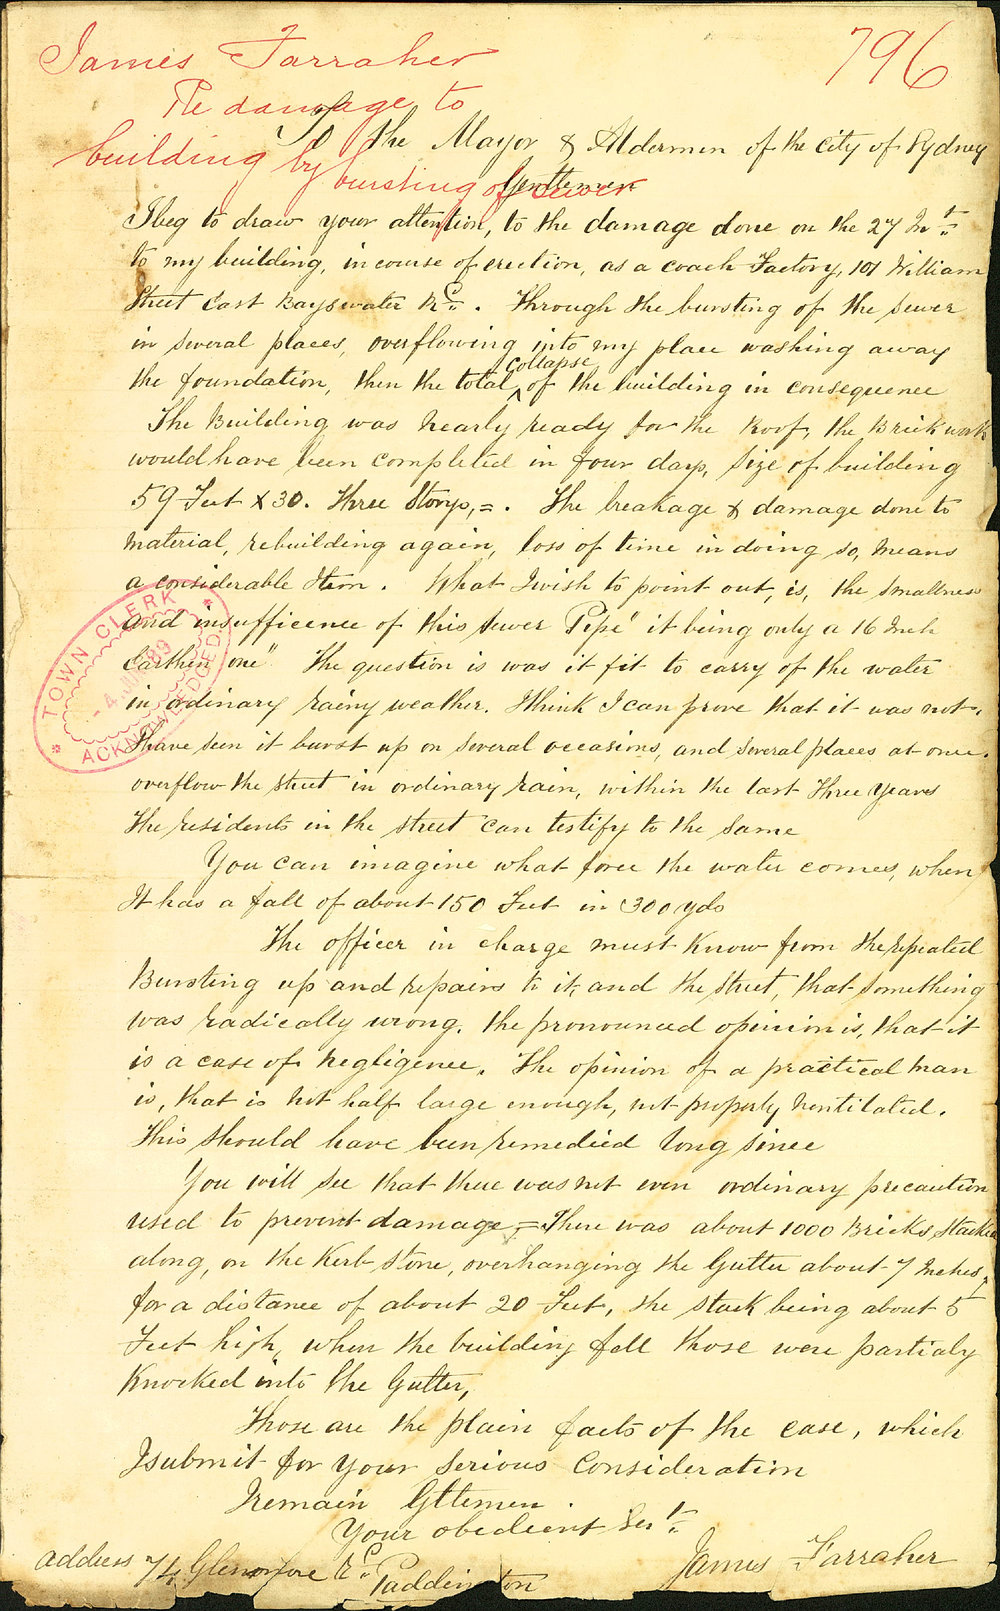 James Farraher
796
Re damage to
building by bursting of sewer
To the Mayor & Aldermen of the City of Sydney
Gentlemen
I beg to draw your attention, to the damage done on the 27 Inst
to my building, in course of erection, as a coach Factory, 101 William
Street East Bayswater Rd. Through the bursting of the sewer
in several places, overflowing into my place washing away
the foundation, then the total collapse of the building in consequence
The Building was nearly ready for the Roof, the Brick work
would have been completed in four days, size of building
59 Feet x 30. Three Storys,=. The breakage & damage done to
material, rebuilding again, loss of time in doing so, means
a considerable Item. What I wish to point out, is, the smallness
and insufficence of this sewer "Pipe" it being only a 16 Inch
Earthen one" The question is was it fit to carry of the water
in ordinary rainy weather. I think I can prove that it was not.
I have seen it burst up on several occasions, and several places at once.
overflow the street in ordinary rain, within the last Three years
the residents in the street can testify to the same
You can imagine what force the water comes, when
It has a fall of about 150 Feet in 300 yds
The officer in charge must know from the repeated
Bursting up and repairs to it, and the street, that something
was radically wrong. the pronounced opinion is, that it
is a case of negligence. The opinion of a practical man
is, that is not half large enough, not properly ventilated.
This should have been remedied long since
You will see that there was not even ordinary precaution
used to prevent damage,= There was about 1000 Bricks, stacked
along, on the Kerb, stone, overhanging the Gutter about 7 Inches,
for a distance of about 20 Feet, the stack being about 5
Feet high, when the building fell those were partialy
Knocked into the Gutter,
Those are the plain facts of the case, which
I submit for your serious Consideration
I remain Gttemen.
Your obedient Sert
James Farraher
address 74 Glenmore Rd Paddington
TOWN CLERK
ACKNOWLEDGED